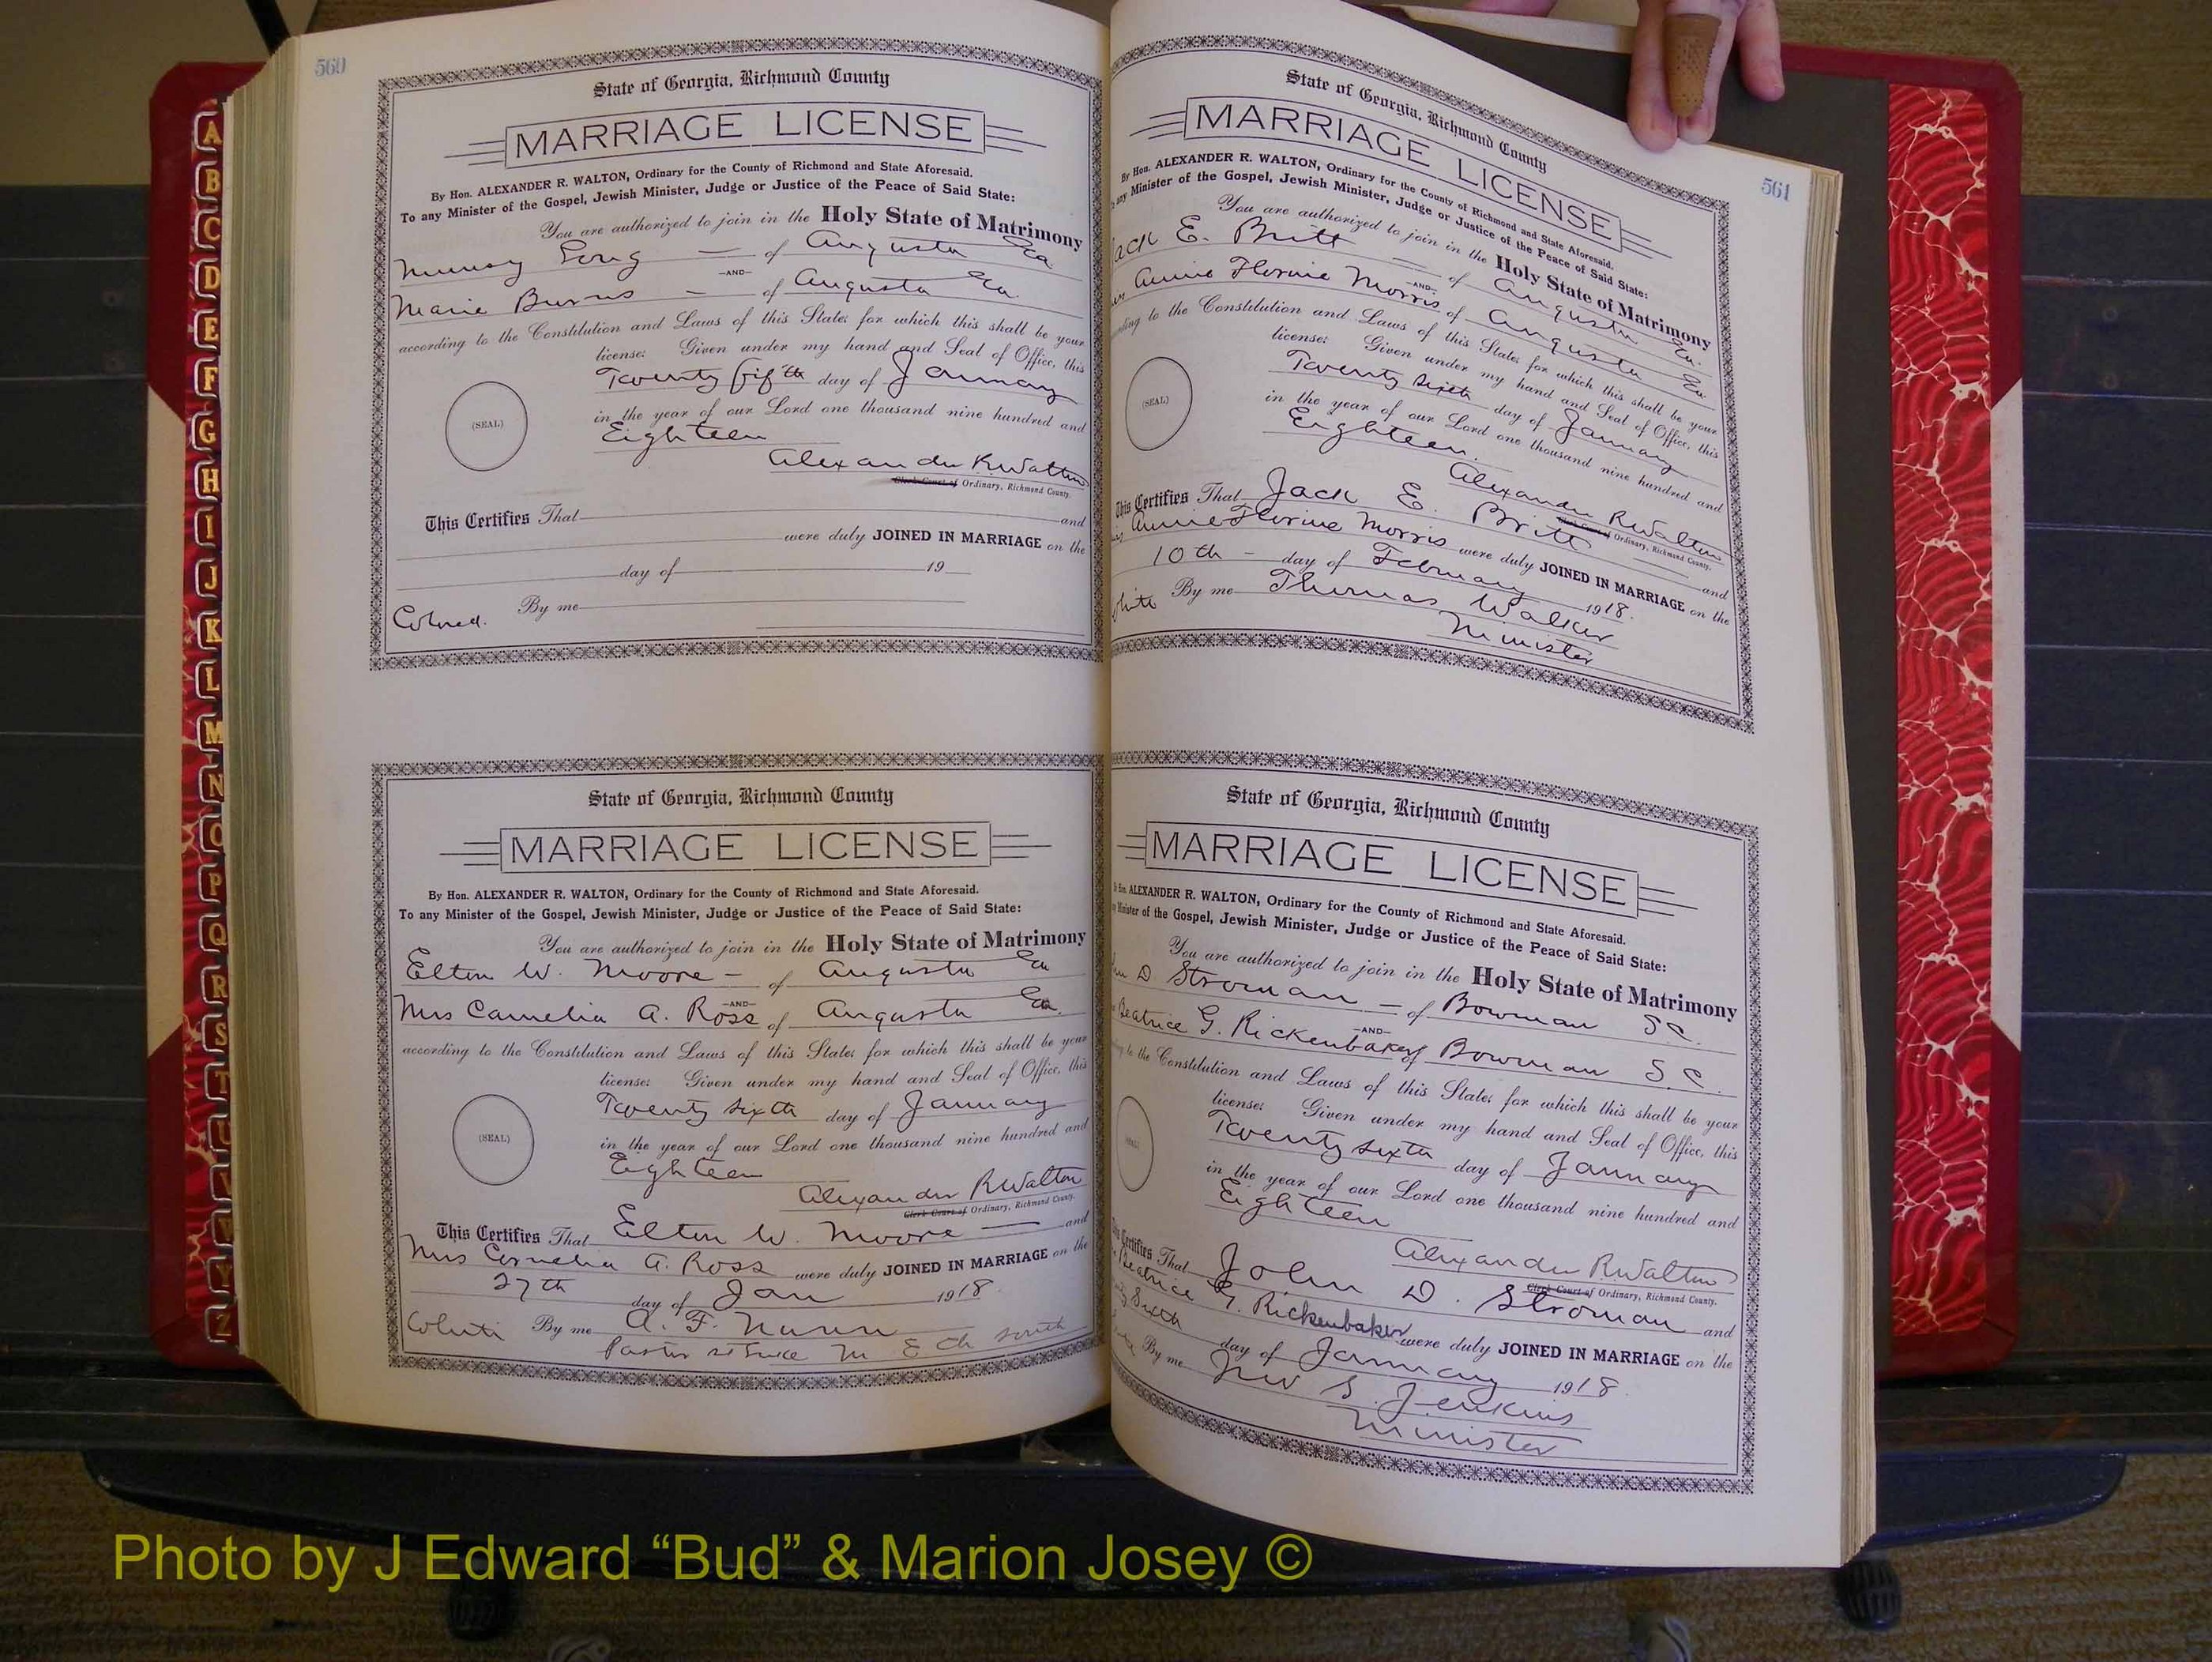 560
State of Georgia, Richmond County
MARRIAGE LICENSE
By Hon. ALEXANDER R. WALTON, Ordinary for the County of Richmond and State Aforesaid.
To any Minister of the Gospel, Jewish Minister, Judge or Justice of the Peace of Said State:
You are authorized to join in the Holy State of Matrimony
Murray Long — of Augusta Ga.
—AND—
Marie Burns — of Augusta Ga.
according to the Constitution and Laws of this State; for which this shall be your
license: Given under my hand and Seal of Office, this
Twenty fifth day of January
(SEAL)
in the year of our Lord one thousand nine hundred and
Eighteen
Alexander R Walton
Clerk Court of Ordinary, Richmond County.
This Certifies That and
were duly JOINED IN MARRIAGE on the
day of 19
Colored. By me
State of Georgia, Richmond County
MARRIAGE LICENSE
By Hon. ALEXANDER R. WALTON, Ordinary for the County of Richmond and State Aforesaid.
To any Minister of the Gospel, Jewish Minister, Judge or Justice of the Peace of Said State:
You are authorized to join in the Holy State of Matrimony
Elton W. Moore — of Augusta Ga
—AND—
Mrs Camelia A. Ross of Augusta Ga.
according to the Constitution and Laws of this State; for which this shall be your
license: Given under my hand and Seal of Office, this
Twenty sixth day of January
(SEAL)
in the year of our Lord one thousand nine hundred and
Eighteen
Alexander R Walton
Clerk Court of Ordinary, Richmond County.
This Certifies That Elton W. Moore — and
Mrs Cornelia A. Ross were duly JOINED IN MARRIAGE on the
27th day of Jan 1918.
White By me A. F. Nunn
Pastor M E Ch South
561
State of Georgia, Richmond County
MARRIAGE LICENSE
By Hon. ALEXANDER R. WALTON, Ordinary for the County of Richmond and State Aforesaid.
To any Minister of the Gospel, Jewish Minister, Judge or Justice of the Peace of Said State:
You are authorized to join in the Holy State of Matrimony
ack E. Britt — of Augusta Ga.
—AND—
Annie Florine Morris of Augusta Ga
to the Constitution and Laws of this State; for which this shall be your
license: Given under my hand and Seal of Office, this
Twenty sixth day of January
(SEAL)
in the year of our Lord one thousand nine hundred and
Eighteen.
Alexander R Walton
Clerk Court of Ordinary, Richmond County.
This Certifies That Jack E. Britt and
Annie Florine Morris were duly JOINED IN MARRIAGE on the
10th — day of February 1918.
White By me Thomas Walker
Minister
State of Georgia, Richmond County
MARRIAGE LICENSE
Hon. ALEXANDER R. WALTON, Ordinary for the County of Richmond and State Aforesaid.
Minister of the Gospel, Jewish Minister, Judge or Justice of the Peace of Said State:
You are authorized to join in the Holy State of Matrimony
D Stroman — of Bowman S C.
—AND—
Beatrice G. Rickenbaker of Bowman S. C.
to the Constitution and Laws of this State; for which this shall be your
license: Given under my hand and Seal of Office, this
Twenty sixth day of January
(SEAL)
in the year of our Lord one thousand nine hundred and
Eighteen
Alexander R Walton
Clerk Court of Ordinary, Richmond County.
Certifies That John D. Stroman and
Beatrice G. Rickenbaker were duly JOINED IN MARRIAGE on the
Sixth day of January 1918.
By me Jno S. Jenkins
Minister
A
B
C
D
E
F
G
H
I
J
K
L
M
N
O
P
Q
R
S
T
U
V
W
Y
Z
Photo by J Edward “Bud” & Marion Josey ©